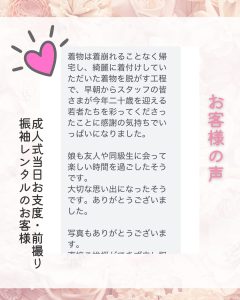 お客様の声
着物は着崩れることなく帰
宅し、綺麗に着付けしてい
ただいた着物を脱がす工程
で、早朝からスタッフの皆
さまが今年二十歳を迎える
若者たちを彩ってくださっ
たことに感謝の気持ちでい
っぱいになりました。
娘も友人や同級生に会って
楽しい時間を過ごしたそう
です。
大切な思い出になったそう
です。ありがとうございまし
た。
写真もありがとうございま
す。
成人式当日お支度・前撮り
振袖レンタルのお客様